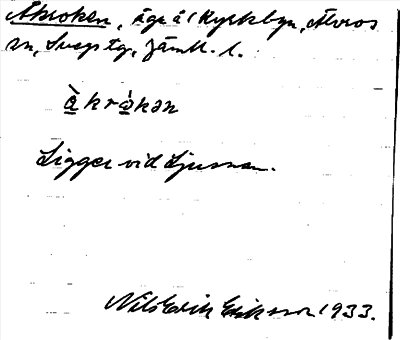 Åkroken, äga å i Kyrkbyn, Älvros
sn, Svegs tg, Jämtl. l.
å̀krò̲kən
Ligger vid Ljusnan.
Nils Erik Eriksson 1933.